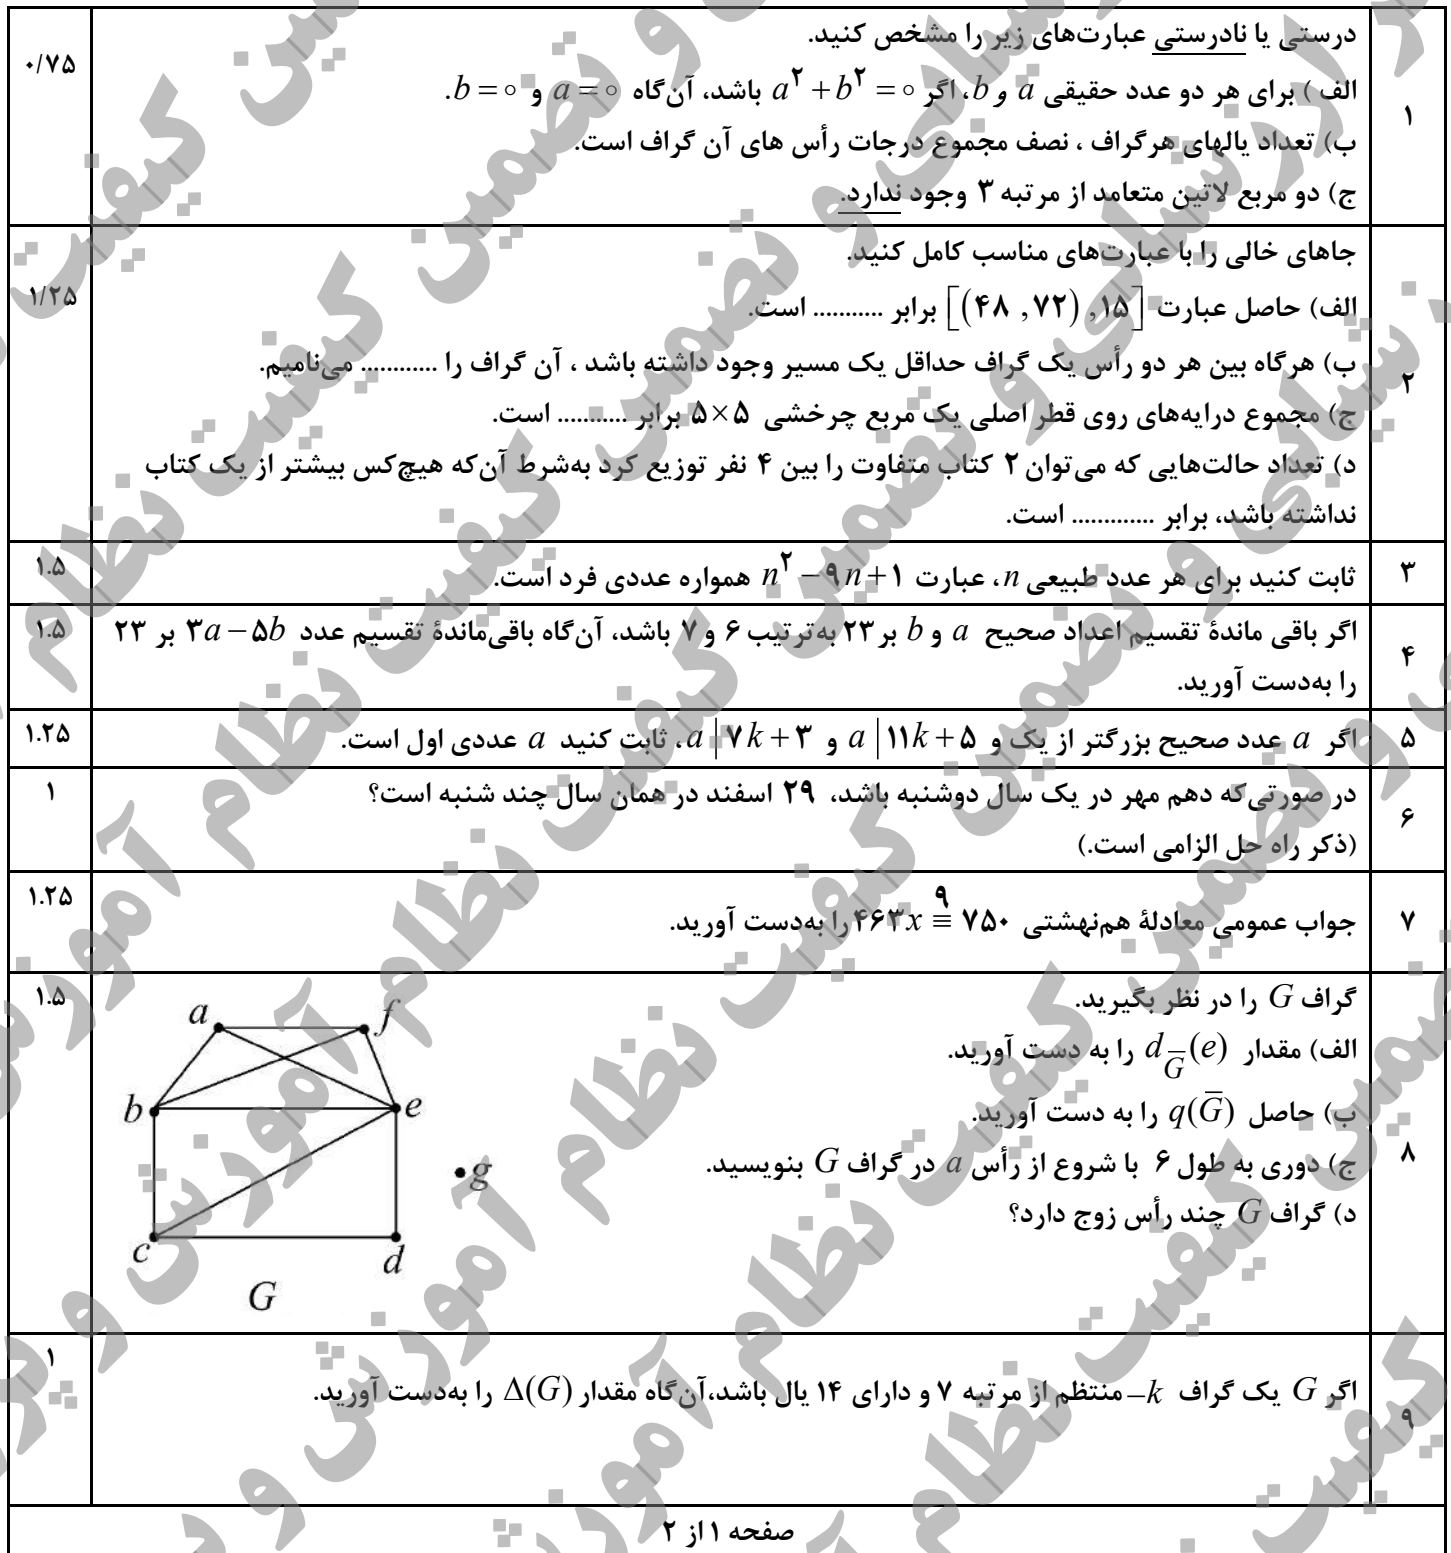 درستی یا نادرستی عبارت‌های زیر را مشخص کنید.
الف) برای هر دو عدد حقیقی a و b، اگر a² + b² = ۰ باشد، آن‌گاه a = ۰ و b = ۰.
ب) تعداد یالهای هرگراف ، نصف مجموع درجات رأس های آن گراف است.
ج) دو مربع لاتین متعامد از مرتبه ۳ وجود ندارد.
۱
۰/۷۵
جاهای خالی را با عبارت‌های مناسب کامل کنید.
الف) حاصل عبارت [(۴۸ , ۷۲) , ۱۵] برابر ........... است.
ب) هرگاه بین هر دو رأس یک گراف حداقل یک مسیر وجود داشته باشد ، آن گراف را ............ می‌نامیم.
ج) مجموع درایه‌های روی قطر اصلی یک مربع چرخشی ۵×۵ برابر ........... است.
د) تعداد حالت‌هایی که می‌توان ۲ کتاب متفاوت را بین ۴ نفر توزیع کرد به‌شرط آن‌که هیچ‌کس بیشتر از یک کتاب
نداشته باشد، برابر ............. است.
۲
۱/۲۵
۳
ثابت کنید برای هر عدد طبیعی n، عبارت n² − ۹n + ۱ همواره عددی فرد است.
۱.۵
۴
اگر باقی ماندهٔ تقسیم اعداد صحیح a و b بر ۲۳ به‌ترتیب ۶ و ۷ باشد، آن‌گاه باقی‌ماندهٔ تقسیم عدد ۳a − ۵b بر ۲۳
را به‌دست آورید.
۱.۵
۵
اگر a عدد صحیح بزرگتر از یک و a | ۱۱k + ۵ و a | ۷k + ۳، ثابت کنید a عددی اول است.
۱.۲۵
۶
در صورتی‌که دهم مهر در یک سال دوشنبه باشد، ۲۹ اسفند در همان سال چند شنبه است؟
(ذکر راه حل الزامی است.)
۱
۷
جواب عمومی معادلهٔ هم‌نهشتی ۴۶۳x ≡⁹ ۷۵۰ را به‌دست آورید.
۱.۲۵
۸
گراف G را در نظر بگیرید.
الف) مقدار d_G̅(e) را به دست آورید.
ب) حاصل q(G̅) را به دست آورید.
ج) دوری به طول ۶ با شروع از رأس a در گراف G بنویسید.
د) گراف G چند رأس زوج دارد؟
۱.۵
a
f
b
e
g
c
d
G
۹
اگر G یک گراف k–منتظم از مرتبه ۷ و دارای ۱۴ یال باشد،آن‌گاه مقدار Δ(G) را به‌دست آورید.
۱
صفحه ۱ از ۲